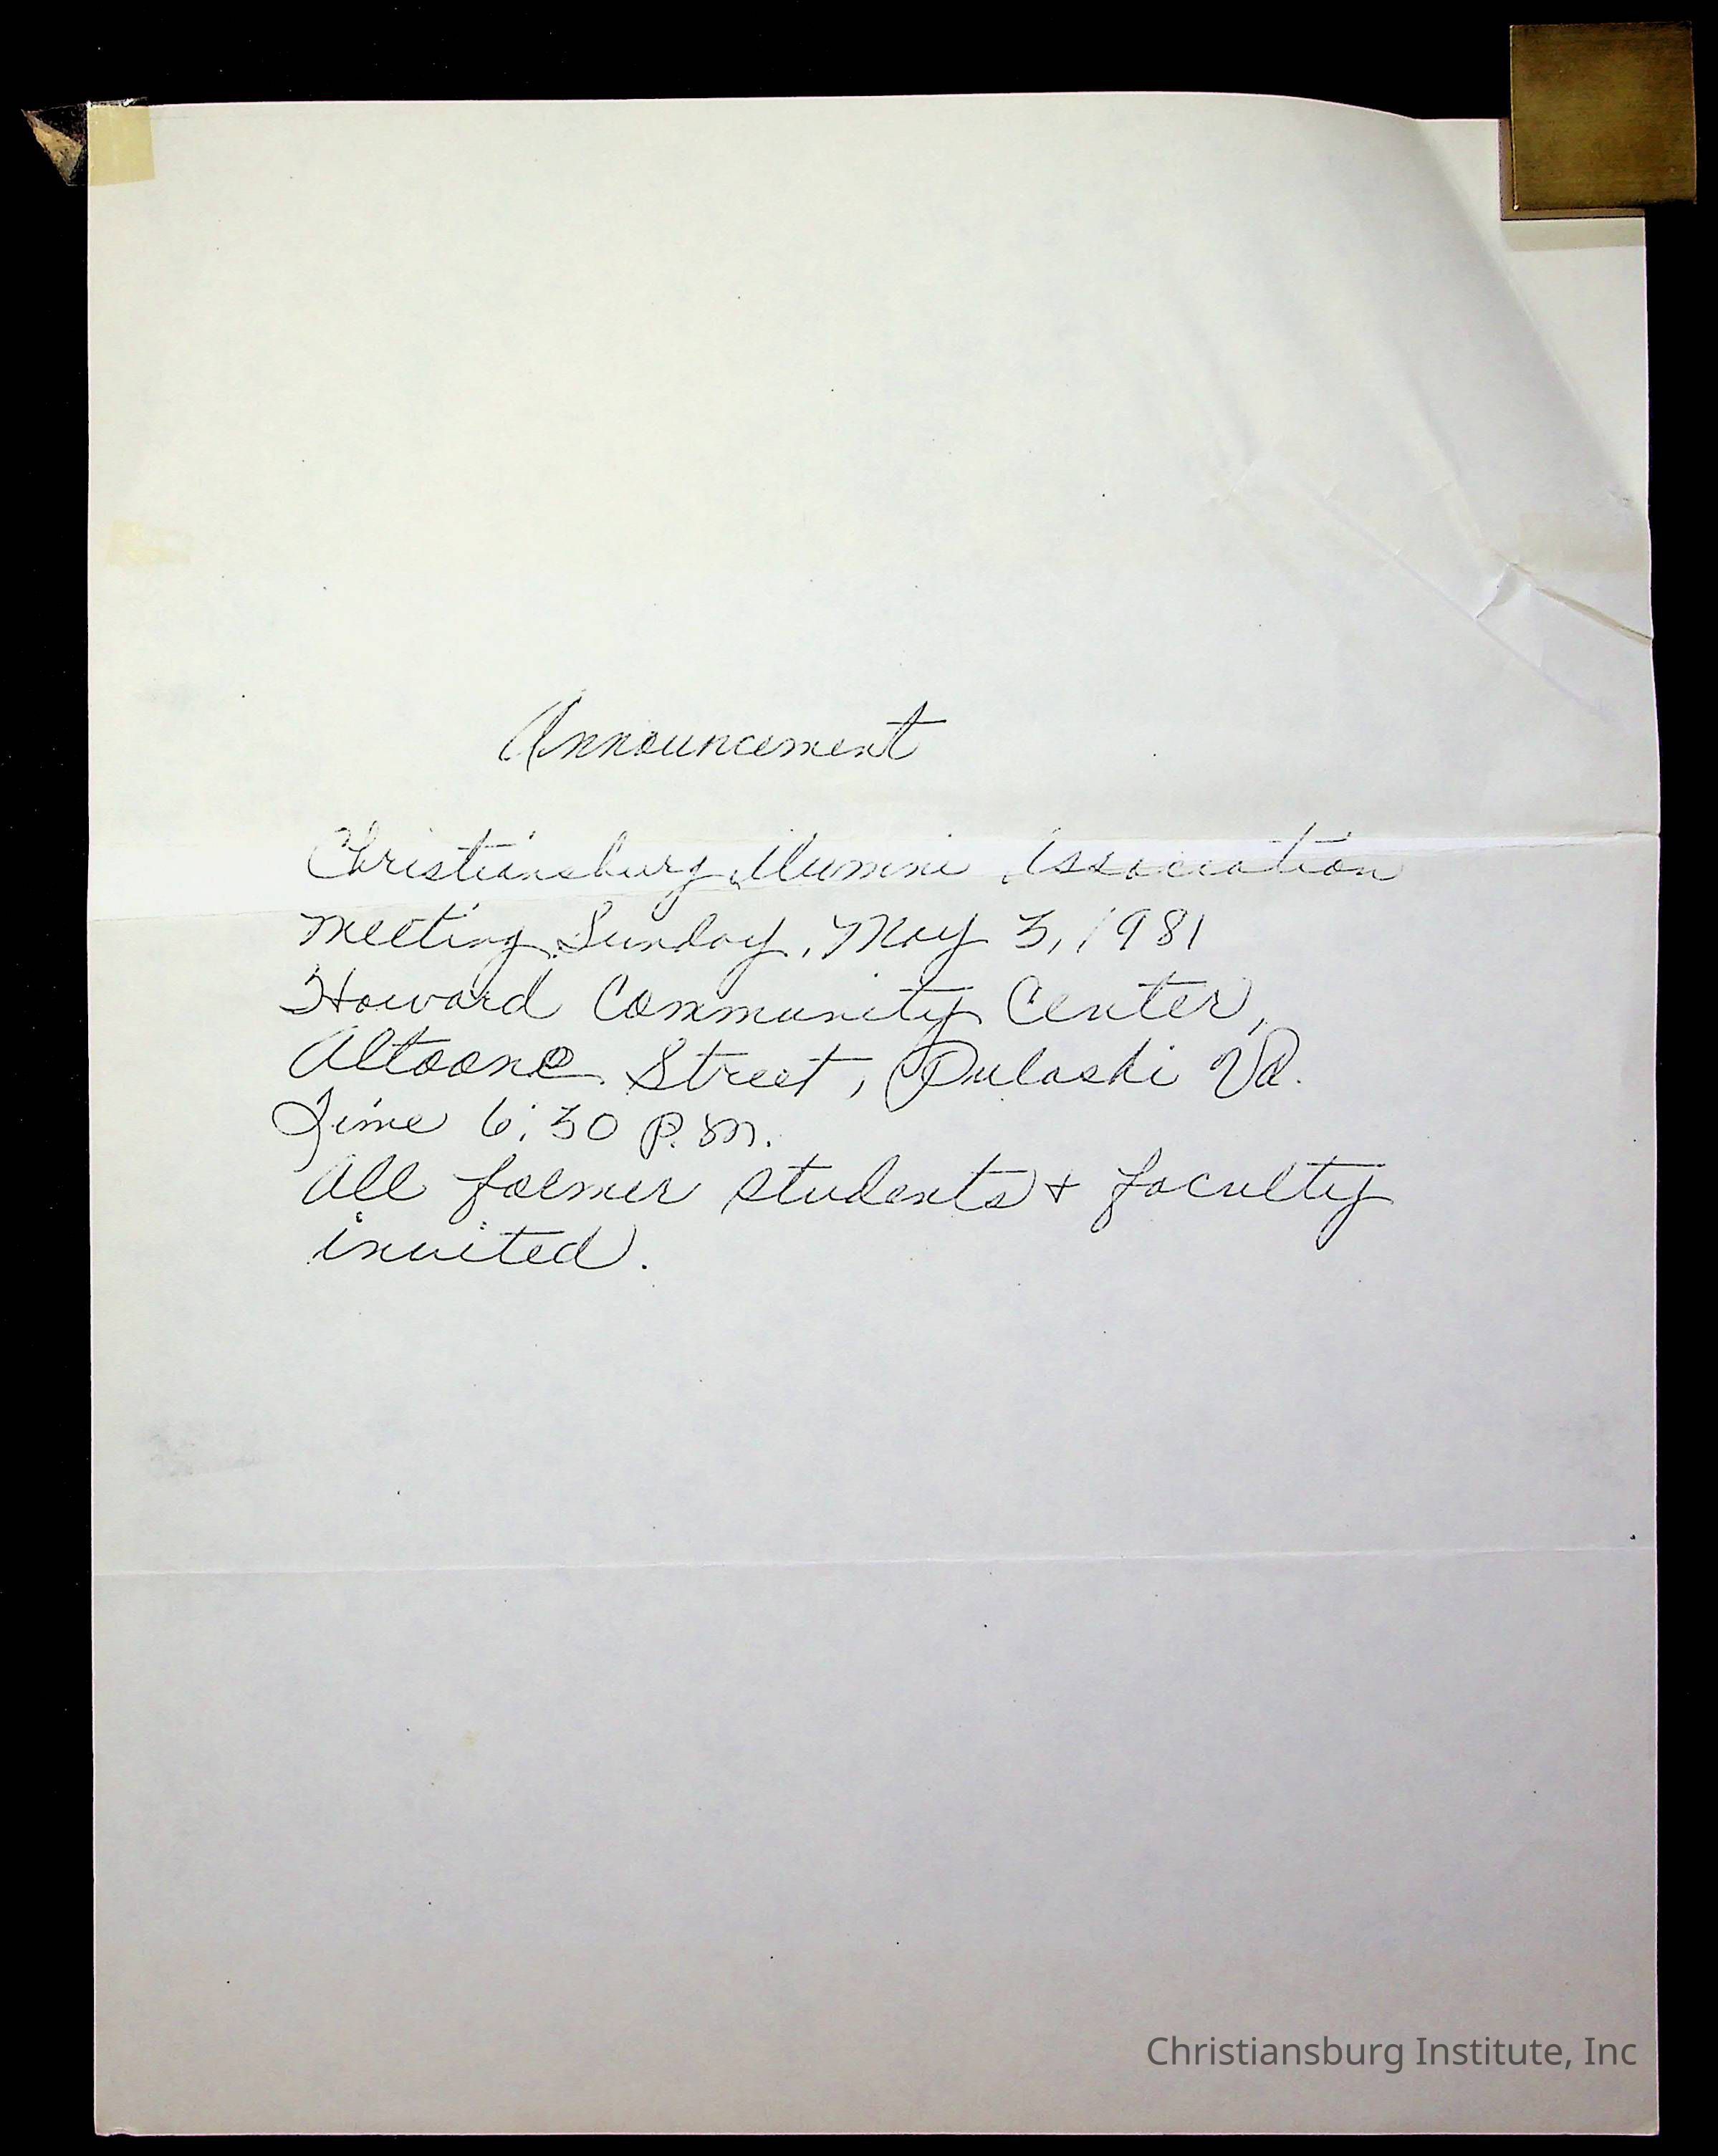 Announcement
Christiansburg Alumni Association
meeting Sunday, May 3, 1981
Howard Community Center,
Altoone Street, Pulaski Va.
Time 6:30 p.m.
All former students + faculty
invited.
Christiansburg Institute, Inc